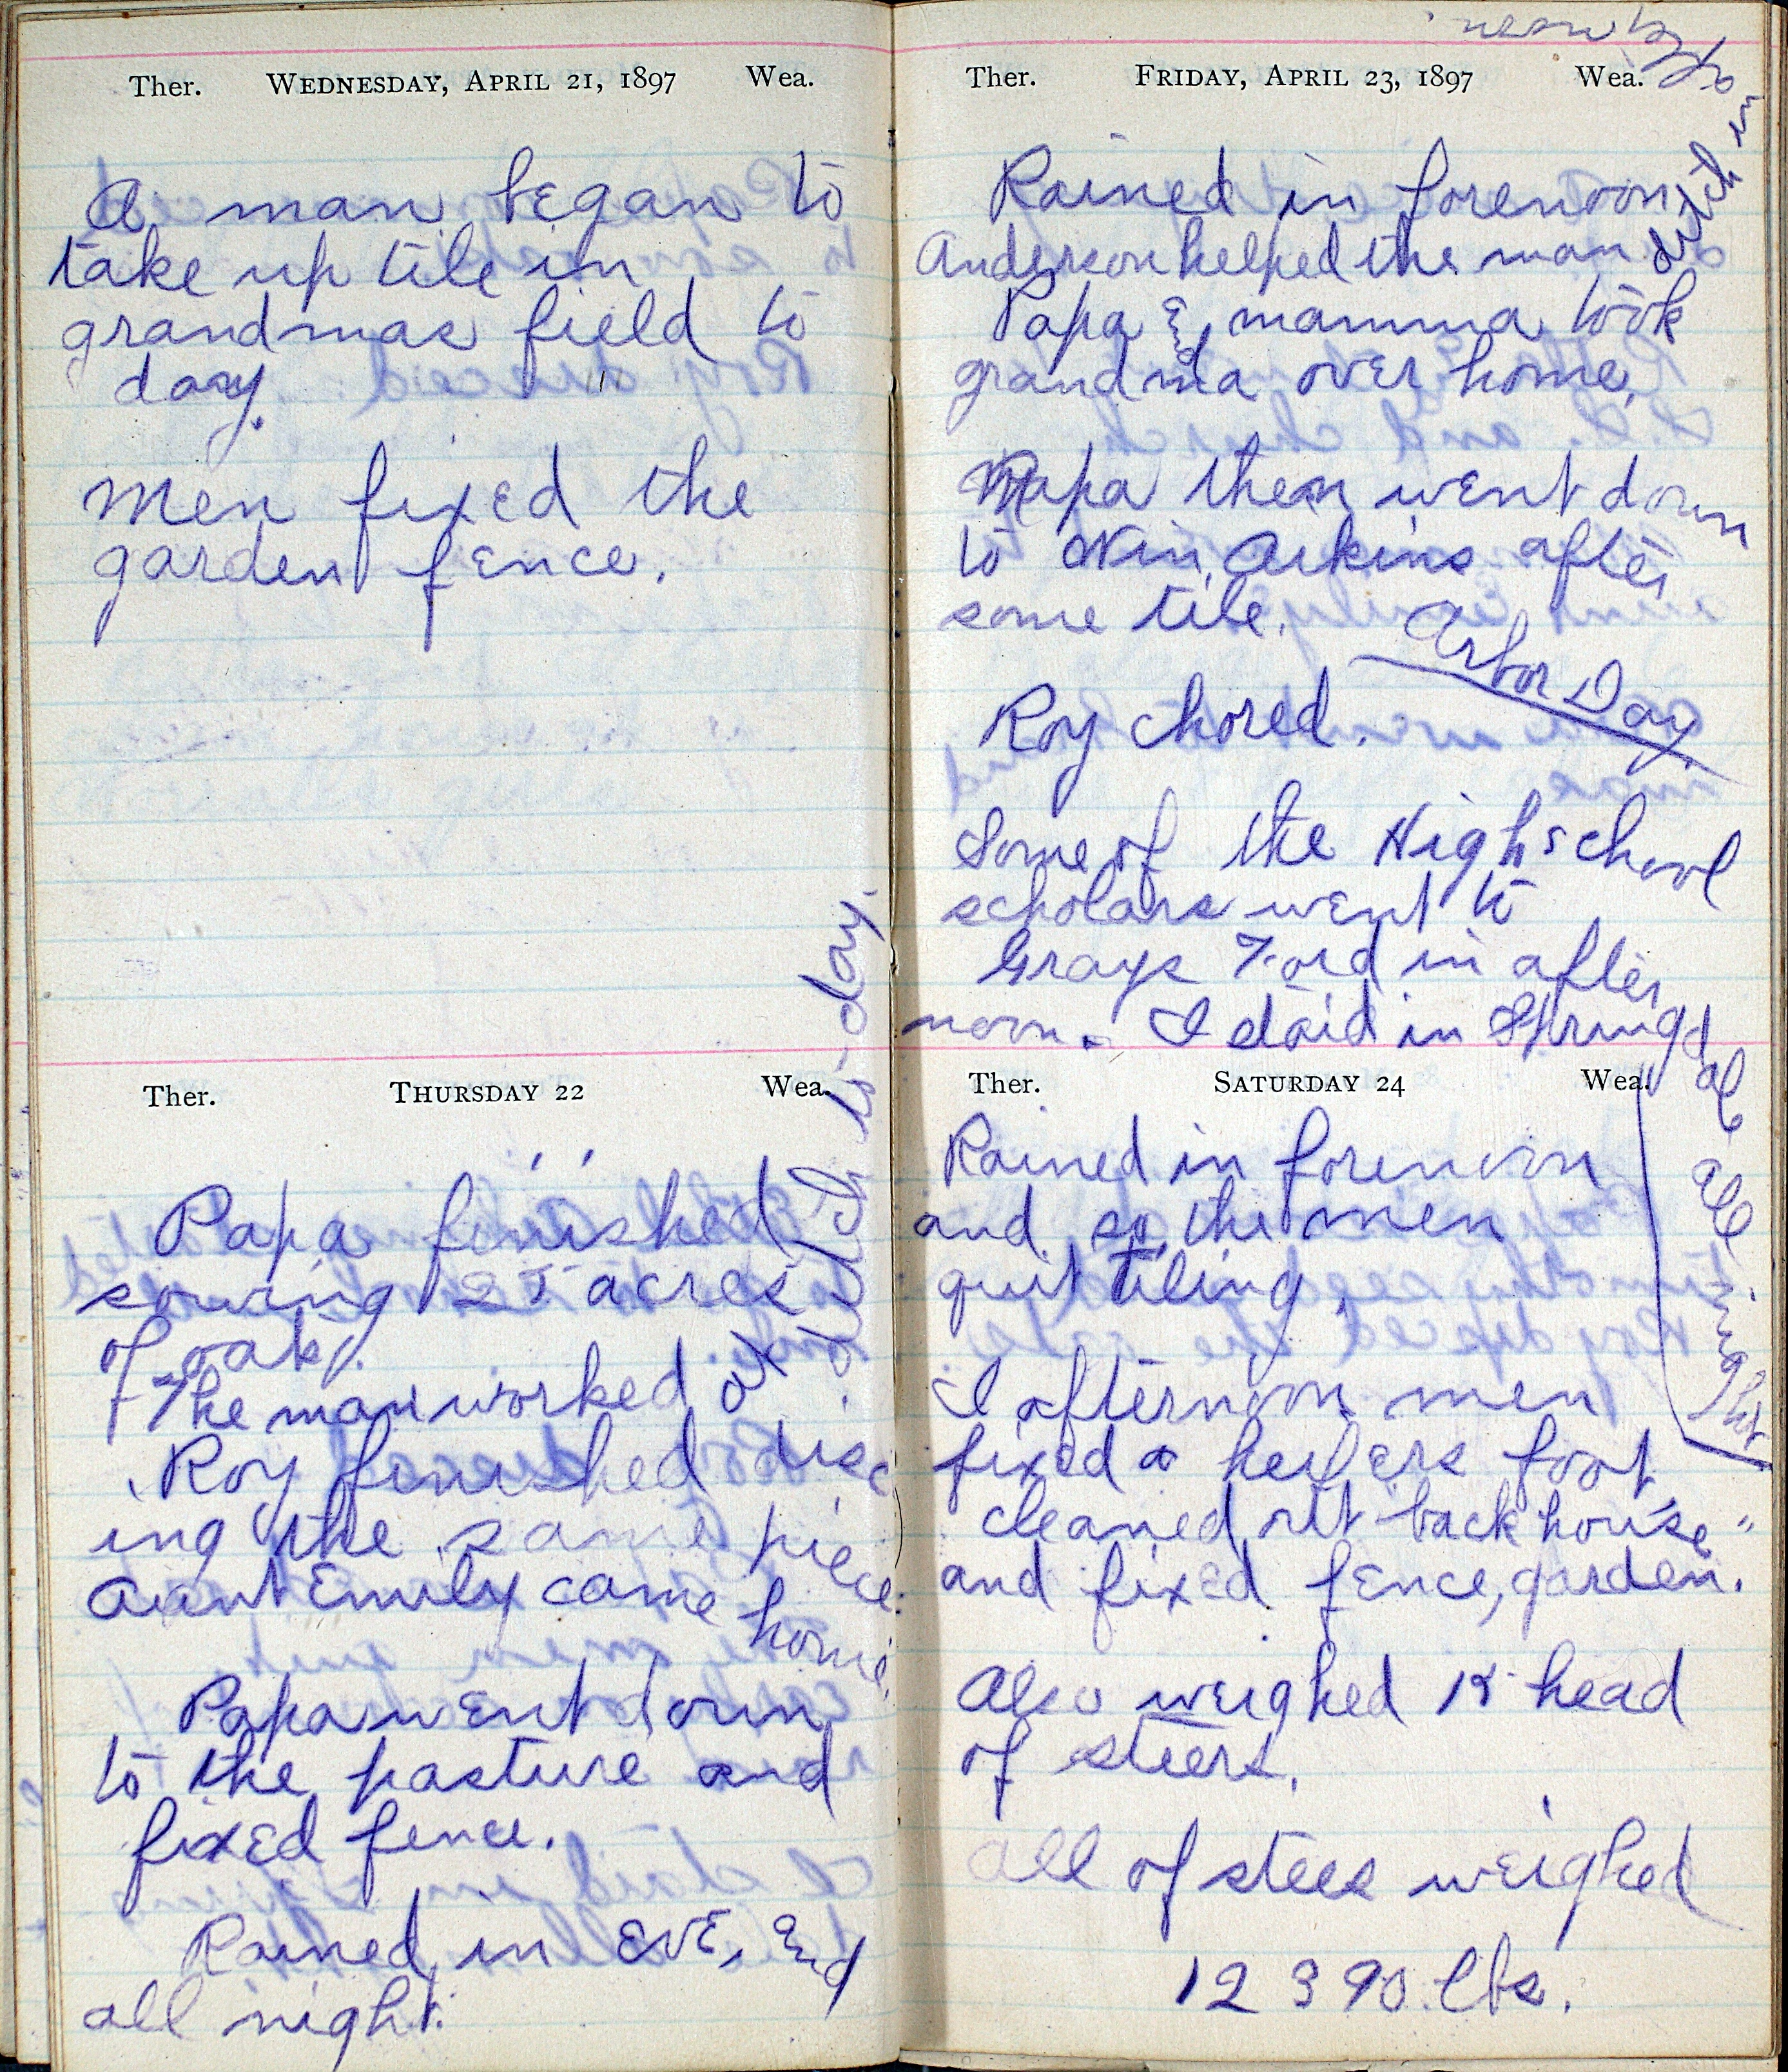 Ther. WEDNESDAY, APRIL 21, 1897 Wea.
A man began to
take up tile in
grandmas field to
day.
Men fixed the
garden fence.
Ther. THURSDAY 22 Wea.
Papa finished
sowing 25 acres
of oats.
The man worked at ditch to-day.
Roy finished disc
ing the same piece.
Aunt Emily came home.
Papa went down
to the pasture and
fixed fence.
Rained in EVE, &
all night.
Ther. FRIDAY, APRIL 23, 1897 Wea.
Rained in forenoon
Anderson helped the man ditch in
Papa & mamma took
grandma over home.
Papa then went down
to Arkins after
some tile.
Arbor Day
Roy chored.
Some of the High school
scholars went to
Grays Ford in after
noon. I staid in Springd
ale all night
Ther. SATURDAY 24 Wea.
Rained in forenoon
and so the men
quit tiling.
I afternoon men
fixed a heifers foot
cleaned out "back house"
and fixed fence, garden.
Also weighed 15 head
of steers.
all of stees weighed
12 390 lbs.